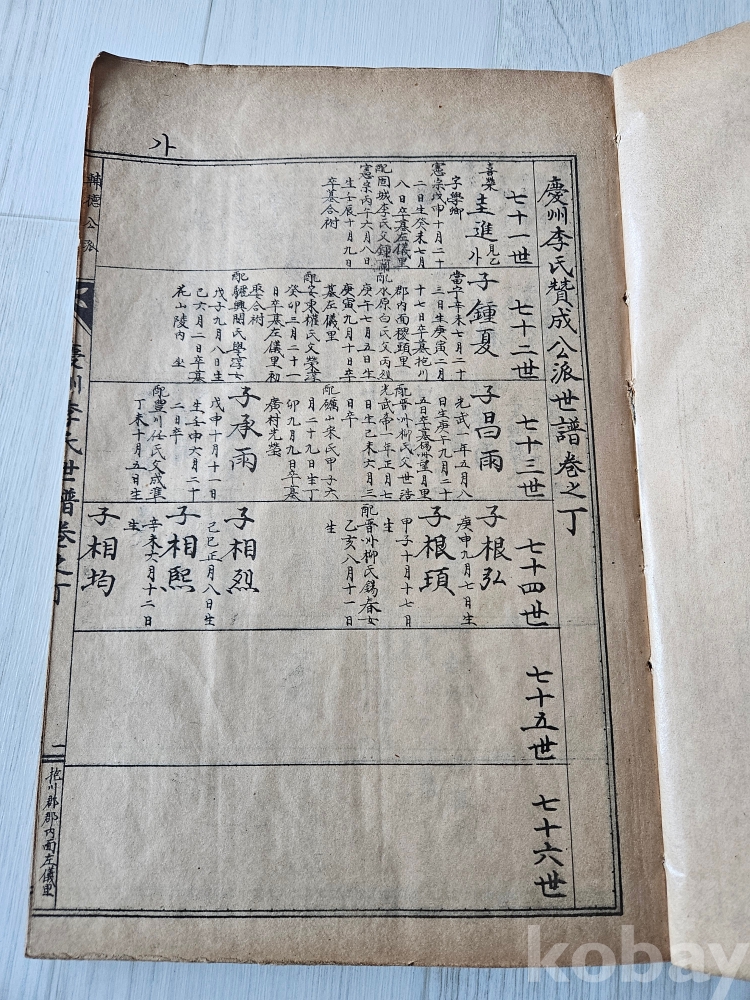 慶州李氏贊成公派世譜卷之丁
七十一世
喜榮
圭進
見乙
字學卿
憲宗戊申十月二十
二日生癸未七月
八日卒墓左儀里
配固城李氏父鍾蘭
憲宗丙午六月八日
生壬辰十月九日
卒墓合祔
七十二世
子鍾夏
當宁辛未七月二十
三日生庚寅二月
十七日卒墓抱川
郡內面稷頭里
配水原白氏父丙烈
庚午七月五日生
庚寅九月十日卒
墓左儀里
配安東權氏父榮深
癸卯三月二十一
日卒墓左儀里初
娶合祔
配驪興閔氏學淳女
戊子九月八日生
己亥月二日卒墓
花山陵內坐
七十三世
子昌雨
光武一年五月八
日生庚午九月二十
五日卒墓楊州望月里
配晉州柳氏父世浩
光武帝一年正月七
日生己未六月三
日卒
配礪山宋氏甲子六
月二十九日生丁
卯九月九日卒墓
廣村先塋
子承雨
戊申十月十一日
生壬申六月二十
二日卒
配豐川任氏父成準
丁未十月五日生
七十四世
子根弘
庚申九月七日生
子根頊
甲子十月十七日
生
配晉州柳氏錫春女
乙亥八月十一日
生
子相烈
己巳正月八日生
子相熙
辛未六月十二日
生
子相均
七十五世
七十六世
輔德公派
慶州李氏世譜卷之丁
一
抱川郡郡內面左儀里
kobay